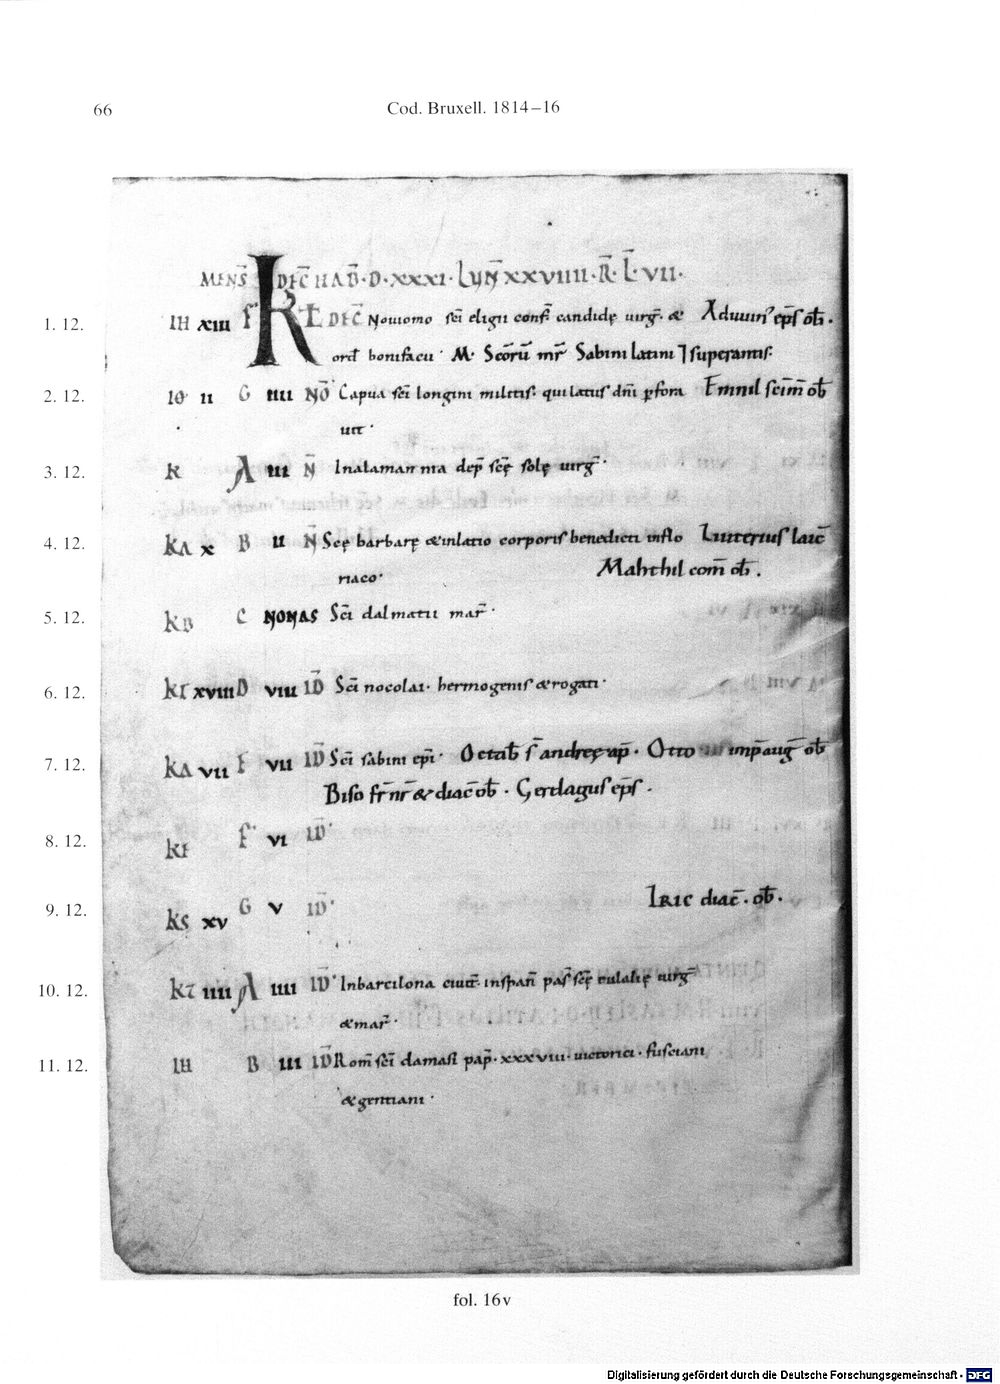 66
Cod. Bruxell. 1814–16
MENS DEC HAB · D · XXXI · LUN XXVIIII · R · L · VII ·
1. 12. IH XIII F KL DEC Nouiomo sci eligii conf candidę uirg · & Aduuin eps ob ·
ord bonifacii · M · Scoru mr Sabini latini ⁊ superantis ·
2. 12. IΘ II G IIII NO Capua sci longini militis · qui latus dni pfora Emnil scim ob
uit ·
3. 12. K A III N In alamannia dep scę solę uirg ·
4. 12. KA X B II N Scę barbarę & inlatio corporis benedicti in flo Liuterius laic
riaco · Mahthil com ob .
5. 12. KB C NONAS Sci dalmatii mar ·
6. 12. KΓ XVIII D VIII ID Sci nocolai · hermogenis & rogati ·
7. 12. KΔ VII E VII ID Sci sabini epi · Octab s andreę ap · Otto imp aug ob
Biso fr nr & diac ob · Gerdagus eps .
8. 12. KE F VI ID
9. 12. KS XV G V ID Iric diac · ob ·
10. 12. KZ IIII A IIII ID In barcilona ciuit · in span pas scę eulalię uirg
& mar ·
11. 12. IH B III ID Rom sci damasi pap · xxxviii · uictorici · fusciani
& gentiani ·
fol. 16v
Digitalisierung gefördert durch die Deutsche Forschungsgemeinschaft - DFG